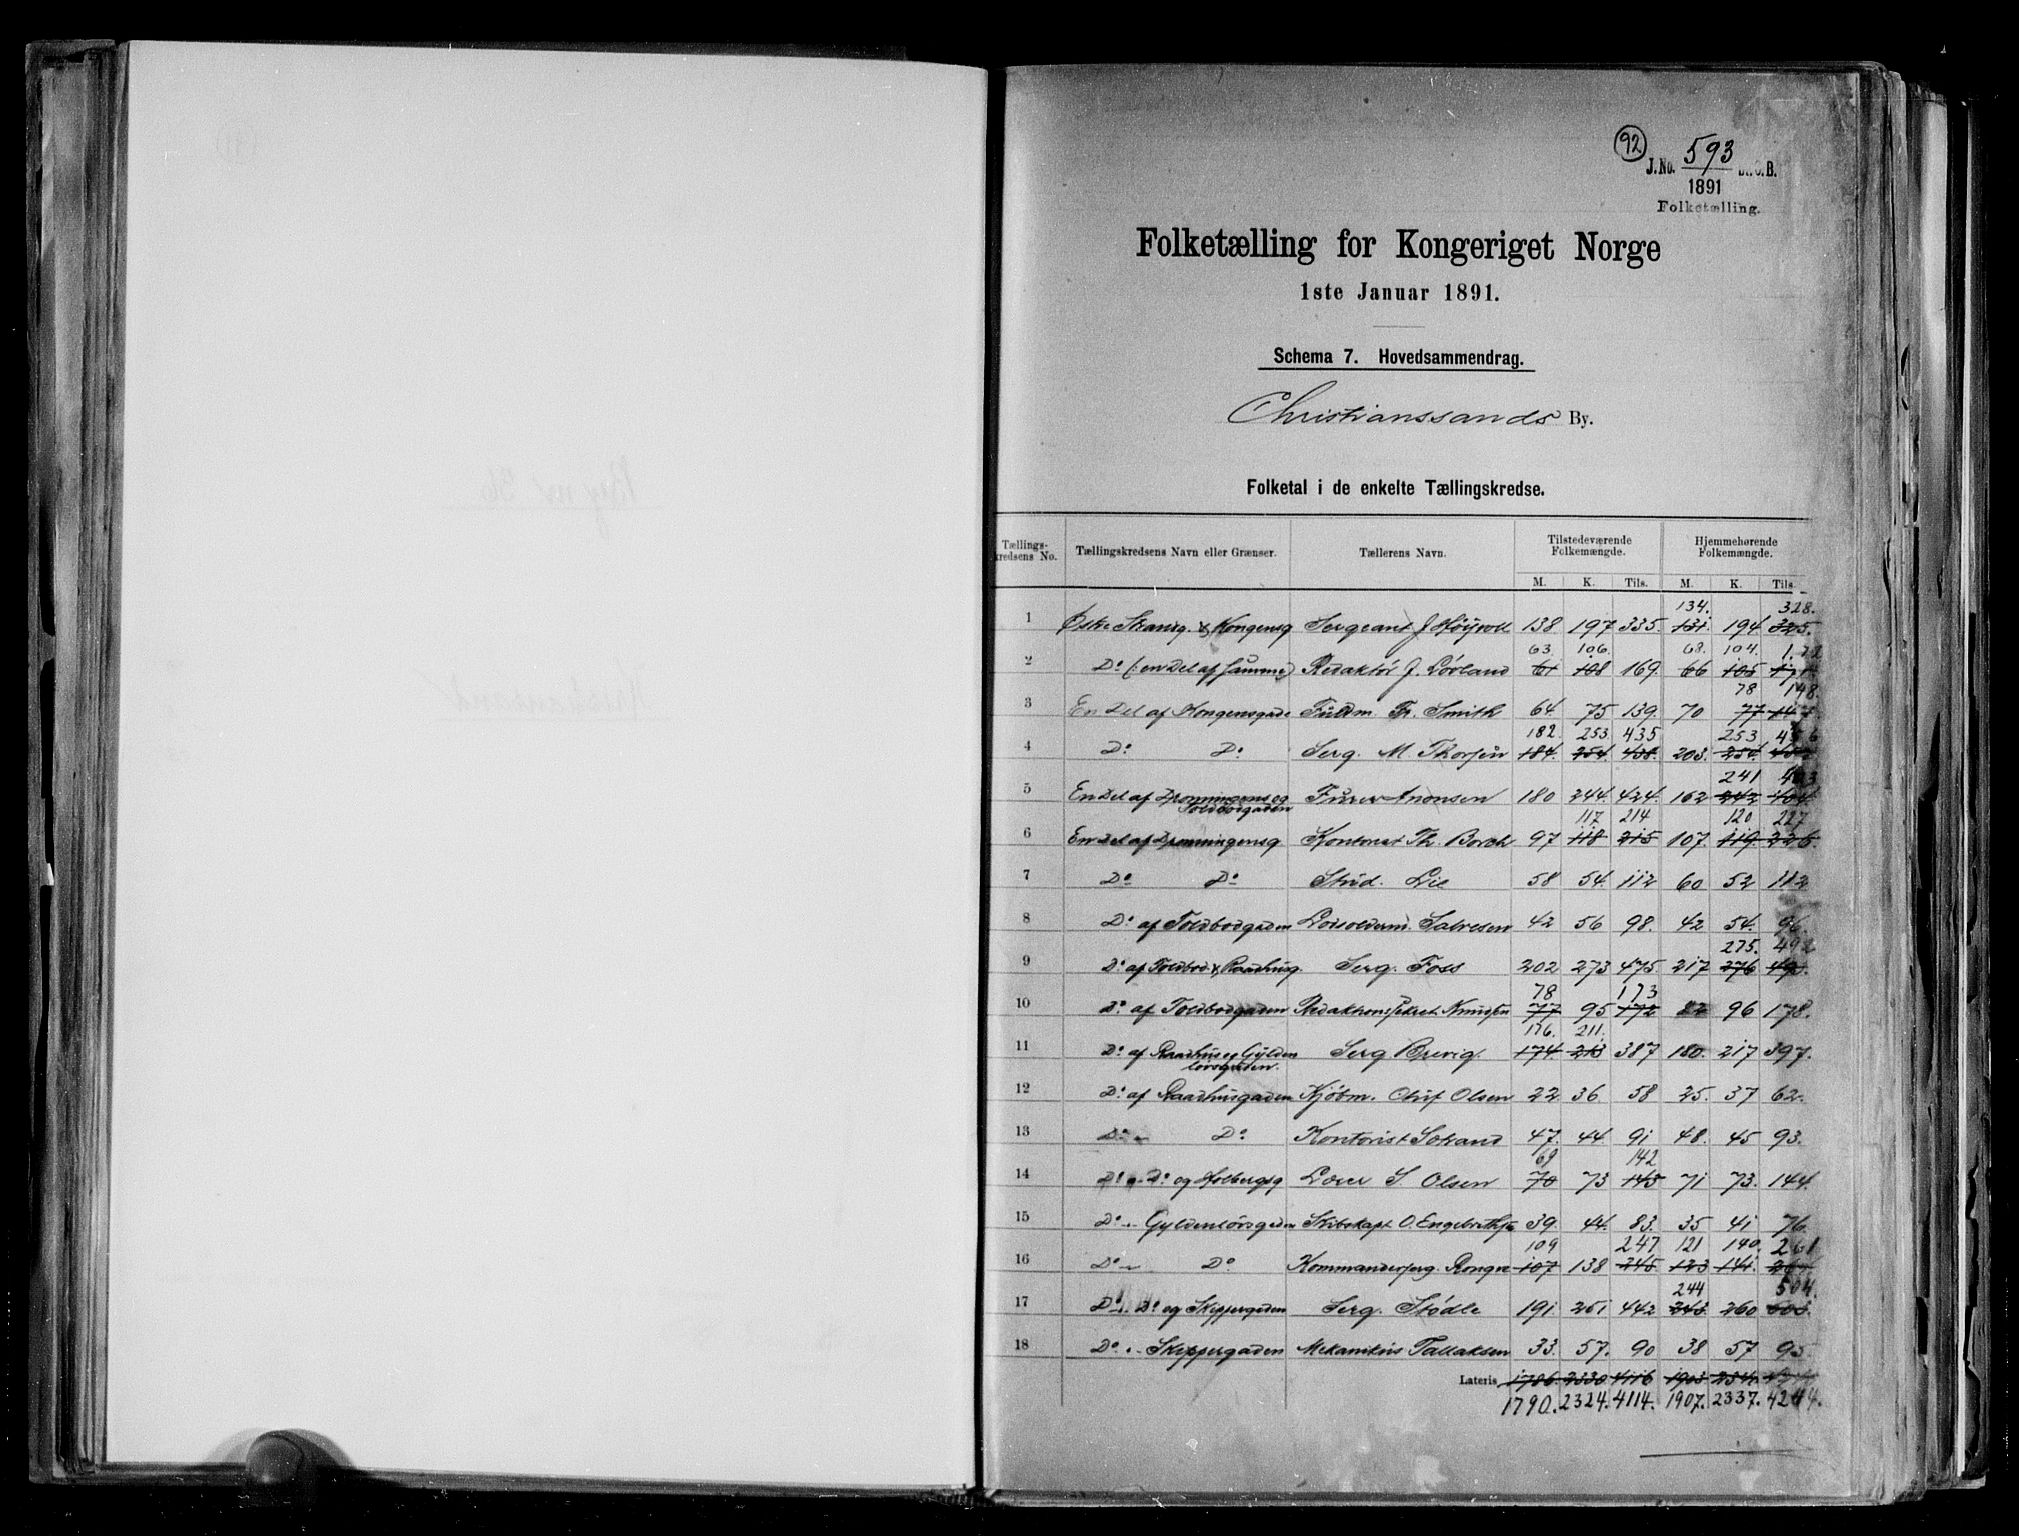 92
J.No. 593
1891
Folketælling.
Folketælling for Kongeriget Norge
1ste Januar 1891.
Schema 7. Hovedsammendrag.
Christianssands By.
Folketal i de enkelte Tællingskredse.
Tællingskredsens No. Tællingskredsens Navn eller Grænser. Tællerens Navn. Tilstedeværende Folkemængde. Hjemmehørende Folkemængde.
M. K. Tils. M. K. Tils.
134. 328.
1 Østre Strandg. & Kongensg Sergeant J Høyvoll 138 197 335. 131. 194 325.
63. 106. 68. 104. 172
2 Do (: en Del af samme) Redaktør J. Lövland 61 108 169. 66 105 171.
78 148.
3 En Del af Kongensgade Fuldm. Fr. Smith 64. 75 139. 70 77 147.
182. 253. 435 253 456
4 Do Do Serg. M Thorsen 184. 254. 438. 203. 254.
241 403
5 En Del af Dronningens og Toldbodgaden Furer Anonsen 180 244. 424. 162 242 404.
117 214 120 227
6 En Del af Dronningensg. Kontorist Th. Borch 97 118 215 107. 119. 226.
7 Do Do Stud. Lie 58 54. 112 60 52 112
8 Do af Toldbodgaden Lodsolderm. Salvesen 42 56 98. 42 54. 96.
275. 492
9 Do af Toldbod. & Raadhusg. Serg. Foss 202 273 475 217 276 493.
78 173
10 Do af Toldbodgaden Redaktionssekret. Knudsen 77 95 172 82 96 178.
176. 211.
11 Do af Raadhus og Gyldenløvsgaden. Serg Brevig. 174. 213 387 180. 217 397.
12 Do af Raadhusgaden Kjøbm. Oluf Olsen 22 36 58 25. 37 62.
13 Do Do Kontorist Strand 47. 44. 91 48. 45 93.
69 142
14 Do Do og Holbergsg Lærer S. Olsen 70 73 143 71 73. 144.
15 Do Gyldenløvsgaden Skibskapt O. Engebrethsen 39. 44. 83. 35 41 76.
109 247 121 140. 261
16 Do Do Kommandersерg. Rongve 107 138 245. 123 141. 264
244 504.
17 Do Do og Skippergaden Serg. Stødle 191 251 442 243 260 503.
18 Do Skippergaden Mekanikus Tallaksen 33. 57. 90 38 57 95
Lateris 1786. 2330 4116 1903 2341.
1790. 2324. 4114. 1907. 2337. 4244.